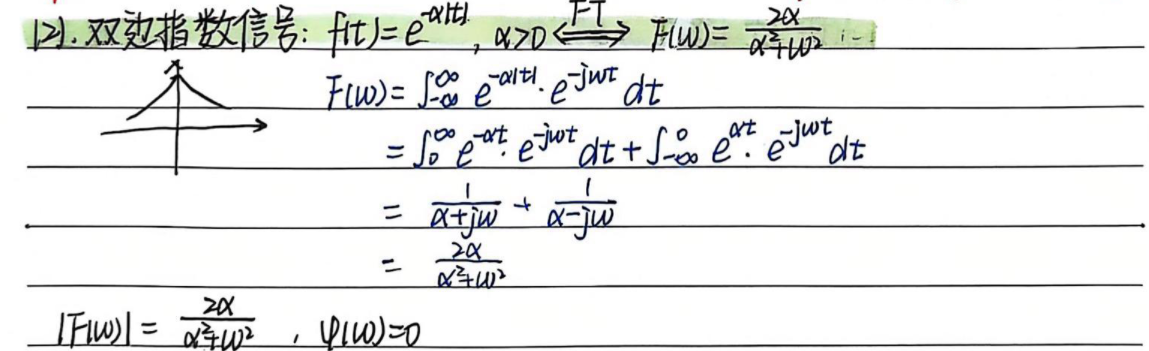 (2). 双边指数信号: f(t)=e^{-α|t|}, α>0 \overset{FT}{⟺} F(ω)=\frac{2α}{α²+ω²}
F(ω)=∫_{-∞}^{∞} e^{-α|t|}·e^{-jωt} dt
=∫_{0}^{∞} e^{-αt}·e^{-jωt} dt+∫_{-∞}^{0} e^{αt}·e^{-jωt} dt
= \frac{1}{α+jω} + \frac{1}{α-jω}
= \frac{2α}{α²+ω²}
|F(ω)| = \frac{2α}{α²+ω²}, φ(ω)=0